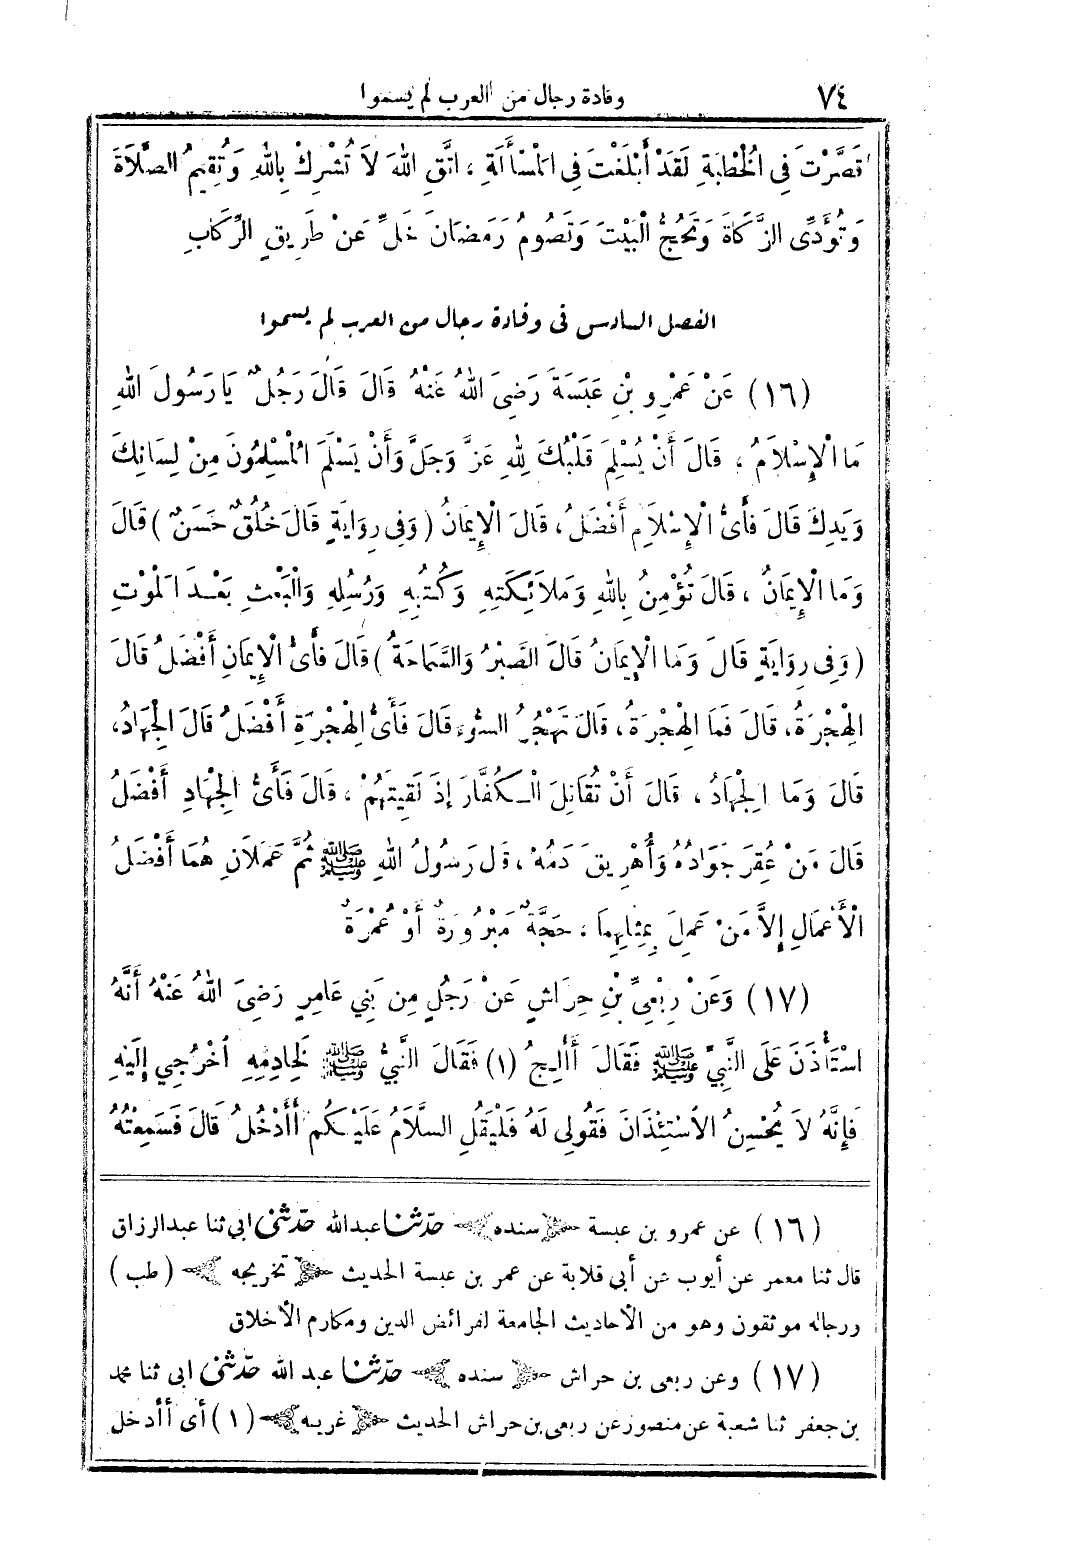 ٧٤ وفادة رجال من العرب لم يسموا
قَصَّرْتَ فِى الْخُطْبَةِ لَقَدْ أَبْلَغْتَ فِى الْمَسْأَلَةِ ، اتَّقِ اللهَ لاَ تُشْرِكْ بِاللهِ وَتُقِيمُ الصَّلاَةَ
وَتُؤَدِّى الزَّكَاةَ وَتَحُجُّ الْبَيْتَ وَتَصُومُ رَمَضَانَ خَلِّ عَنْ طَرِيقِ الرِّكَابِ
الفصل السادس فى وفادة رجال من العرب لم يسموا
(١٦) عَنْ عَمْرِو بْنِ عَبَسَةَ رَضِىَ اللهُ عَنْهُ قَالَ قَالَ رَجُلٌ يَا رَسُولَ اللهِ
مَا الْإِسْلاَمُ ، قَالَ أَنْ يُسْلِمَ قَلْبُكَ لِلهِ عَزَّ وَجَلَّ وَأَنْ يَسْلَمَ الْمُسْلِمُونَ مِنْ لِسَانِكَ
وَيَدِكَ قَالَ فَأَىُّ الْإِسْلاَمِ أَفْضَلُ ، قَالَ الْإِيمَانُ ( وَفِى رِوَايَةٍ قَالَ خُلُقٌ حَسَنٌ ) قَالَ
وَمَا الْإِيمَانُ ، قَالَ تُؤْمِنُ بِاللهِ وَمَلاَئِكَتِهِ وَكُتُبِهِ وَرُسُلِهِ وَالْبَعْثِ بَعْدَ الْمَوْتِ
( وَفِى رِوَايَةٍ قَالَ وَمَا الْإِيمَانُ قَالَ الصَّبْرُ وَالسَّمَاحَةُ ) قَالَ فَأَىُّ الْإِيمَانِ أَفْضَلُ قَالَ
الْهِجْرَةُ ، قَالَ فَمَا الْهِجْرَةُ ، قَالَ تَهْجُرُ السُّوءَ قَالَ فَأَىُّ الْهِجْرَةِ أَفْضَلُ قَالَ الْجِهَادُ ،
قَالَ وَمَا الْجِهَادُ ، قَالَ أَنْ تُقَاتِلَ الْكُفَّارَ إِذَ لَقِيتَهُمْ ، قَالَ فَأَىُّ الْجِهَادِ أَفْضَلُ
قَالَ مَنْ عُقِرَ جَوَادُهُ وَأُهْرِيقَ دَمُهُ ، قَالَ رَسُولُ اللهِ ﷺ ثُمَّ عَمَلاَنِ هُمَا أَفْضَلُ
الْأَعْمَالِ إِلاَّ مَنْ عَمِلَ بِمِثْلِهِمَا ، حَجَّةٌ مَبْرُورَةٌ أَوْ عُمْرَةٌ
(١٧) وَعَنْ رِبْعِىِّ بْنِ حِرَاشٍ عَنْ رَجُلٍ مِن بَنِي عَامِرٍ رَضِىَ اللهُ عَنْهُ أَنَّهُ
اسْتَأْذَنَ عَلَى النَّبِيِّ ﷺ فَقَالَ أَأَلِجُ (١) فَقَالَ النَّبِيُّ ﷺ لِخَادِمِهِ اُخْرُجِي إِلَيْهِ
فَإِنَّهُ لاَ يُحْسِنُ الاِسْتِئْذَانَ فَقُولِى لَهُ فَلْيَقُلِ السَّلاَمُ عَلَيْكُم أَأَدْخُلُ قَالَ فَسَمِعْتُهُ
(١٦) عن عمرو بن عبسة سنده حدّثنا عبدالله حدّثنى ابى ثنا عبدالرزاق
قال ثنا معمر عن أيوب عن أبى قلابة عن عمر بن عبسة الحديث تخريجه ( طب )
ورجاله موثقون وهو من الأحاديث الجامعة لفرائض الدين ومكارم الأخلاق
(١٧) وعن ربعى بن حراش سنده حدّثنا عبد الله حدّثنى ابى ثنا محمد
بن جعفر ثنا شعبة عن منصور عن ربعى بن حراش الحديث غريبه (١) أى أأدخل